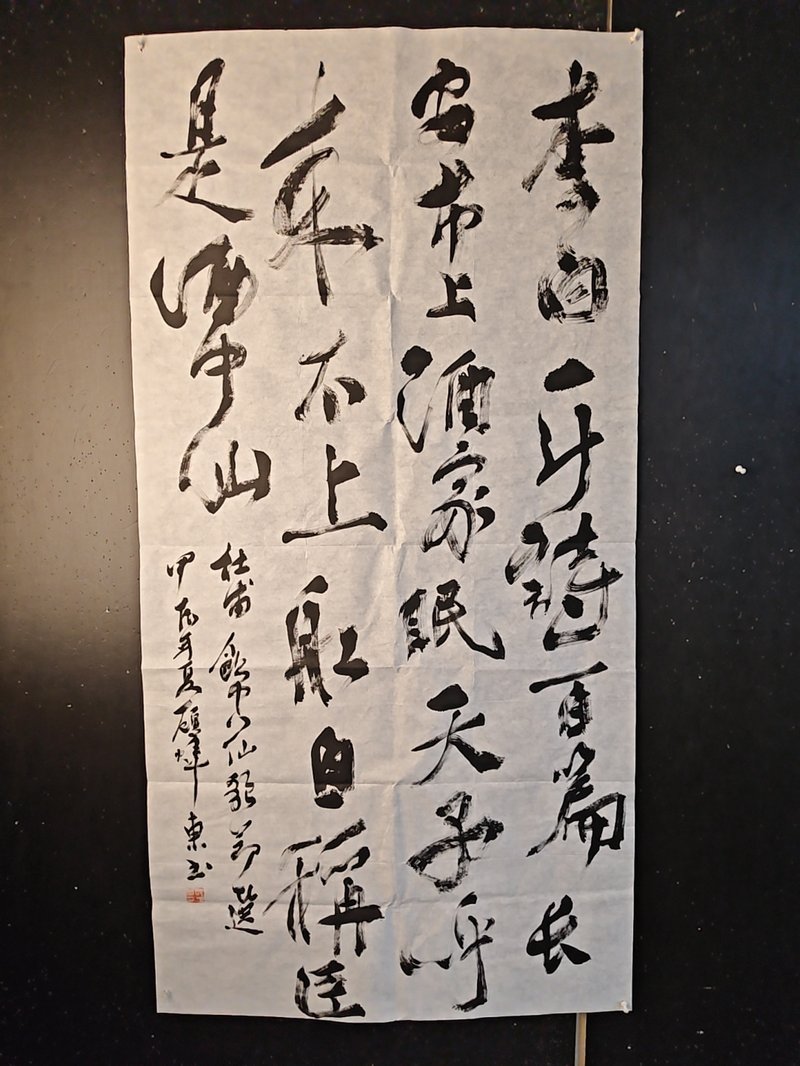 李白一斗詩百篇长
安市上酒家眠天子呼
来不上船自稱臣
是酒中仙
杜甫飲中八仙歌節選
甲辰年夏顧峰東书